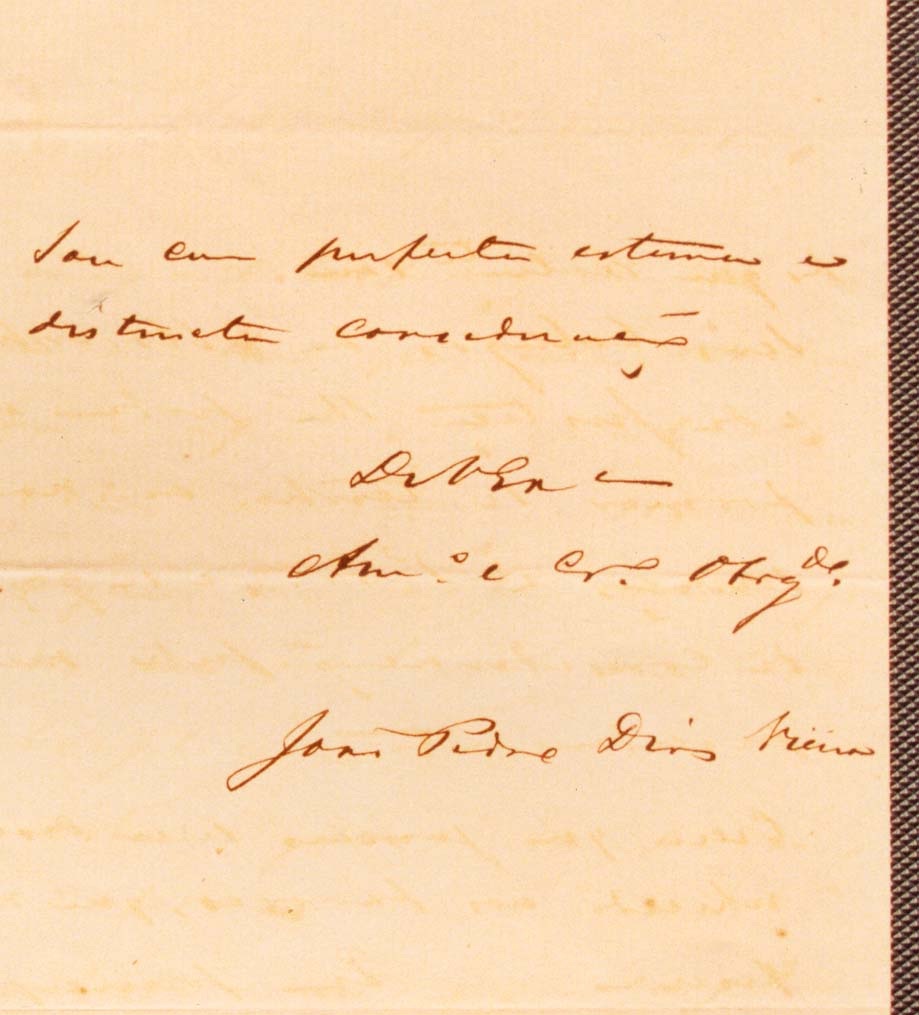 Sou com perfeita estima e
distincta consideração
De V Exa
Amo. e Cro. Obrgdo.
João Pedro Dias Vieira